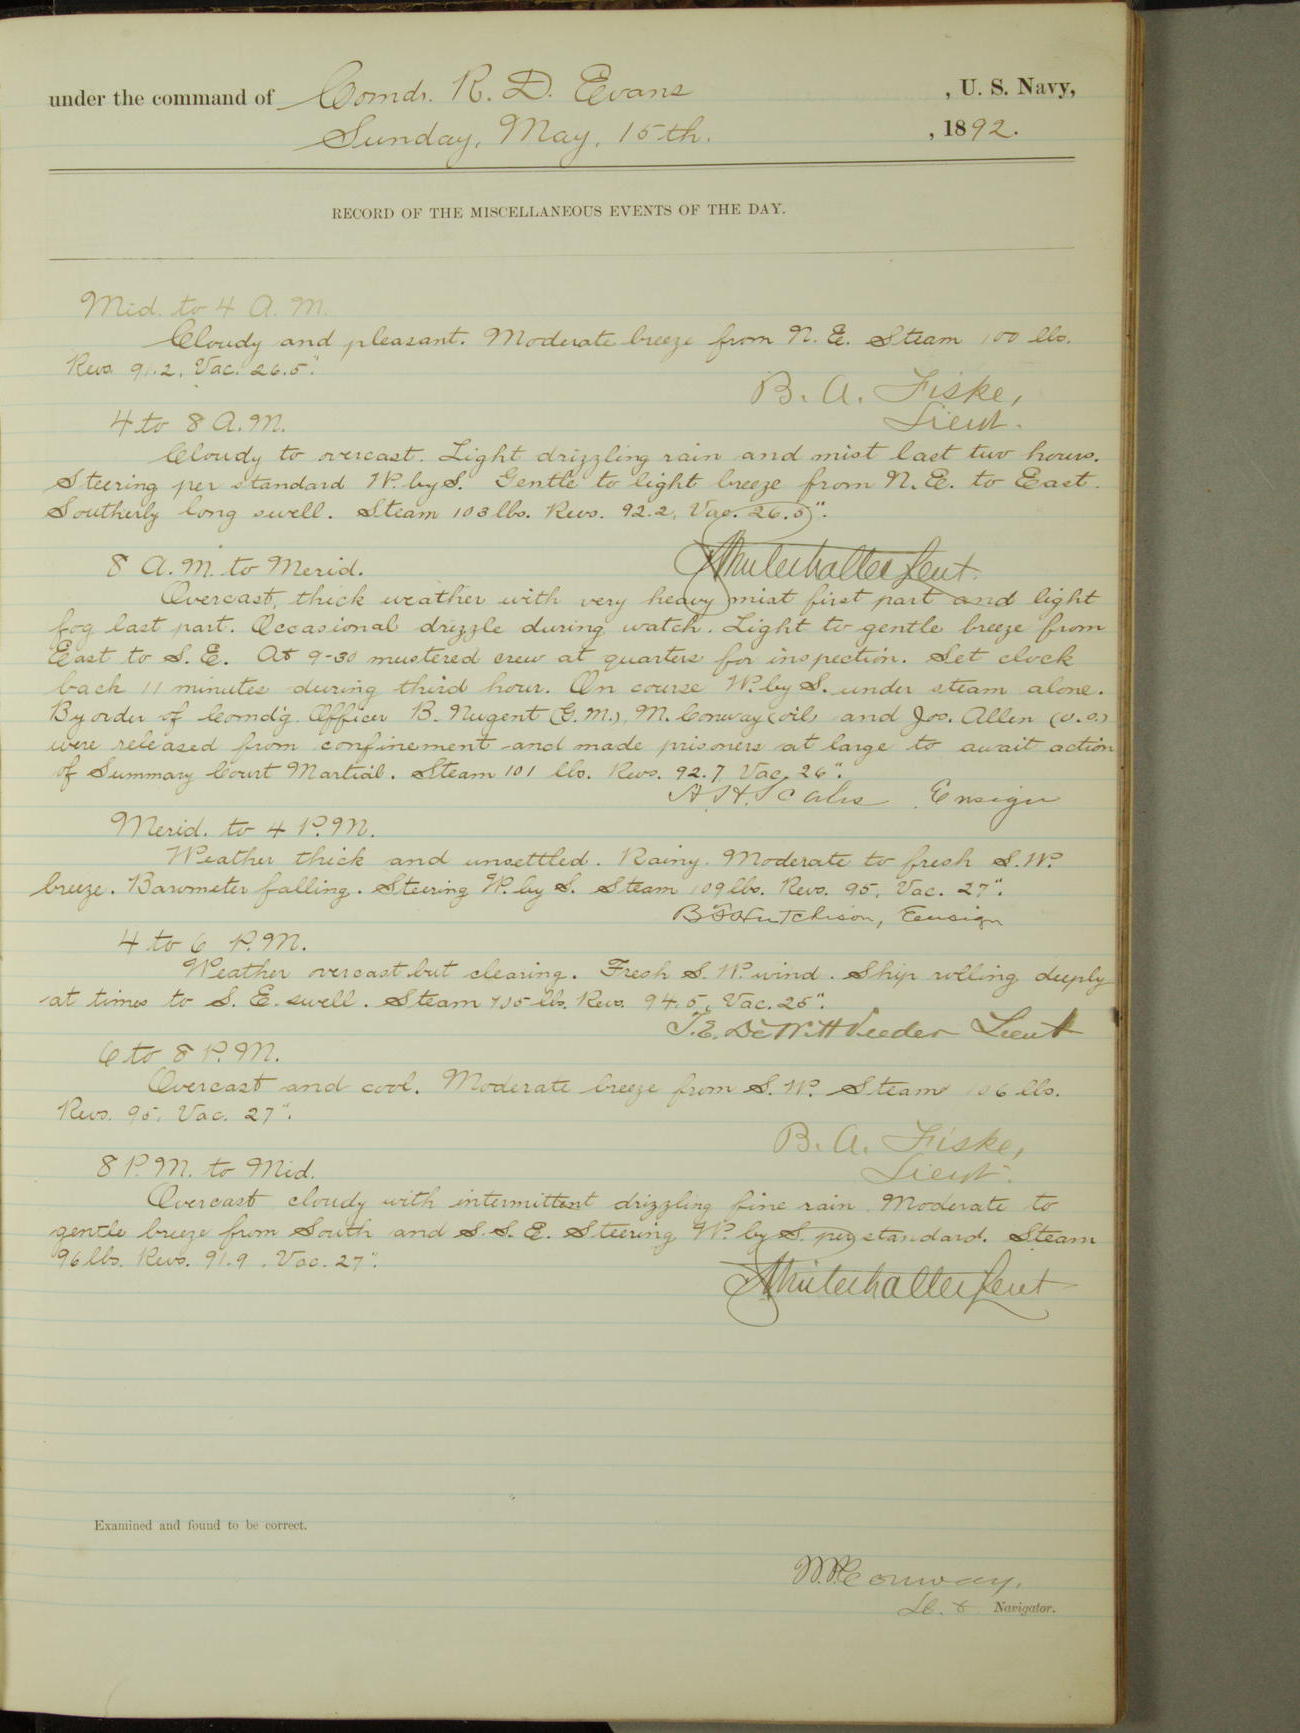 under the command of Comdr. R. D. Evans, U. S. Navy,
Sunday, May, 15th., 1892.
RECORD OF THE MISCELLANEOUS EVENTS OF THE DAY.
Mid. to 4 A. M.
Cloudy and pleasant. Moderate breeze from N. E. Steam 100 lbs.
Revs. 91.2, Vac. 26.5".
B. A. Fiske,
Lieut.
4 to 8 A. M.
Cloudy to overcast. Light drizzling rain and mist last two hours.
Steering per standard W. by S. Gentle to light breeze from N. E. to East.
Southerly long swell. Steam 103 lbs. Revs. 92.2, Vac. 26.5".
Lieut.
8 A. M. to Merid.
Overcast, thick weather with very heavy mist first part and light
fog last part. Occasional drizzle during watch. Light to gentle breeze from
East to S. E. At 9-30 mustered crew at quarters for inspection. Set clock
back 11 minutes during third hour. On course W. by S. under steam alone.
By order of Comd'g. Officer B. Nugent (G. M.), M. Conway (oil) and Jos. Allen (O. S.)
were released from confinement and made prisoners at large to await action
of Summary Court Martial. Steam 101 lbs. Revs. 92.7, Vac. 26".
A. H. Scales Ensign
Merid. to 4 P. M.
Weather thick and unsettled. Rainy. Moderate to fresh S. W.
breeze. Barometer falling. Steering W. by S. Steam 109 lbs. Revs. 95, Vac. 27".
Hutchison, Ensign
4 to 6 P. M.
Weather overcast but clearing. Fresh S. W. wind. Ship rolling deeply
at times to S. E. swell. Steam 105 lbs. Revs. 94.5, Vac. 25".
T. E. DeWitt Veeder Lieut
6 to 8 P. M.
Overcast and cool. Moderate breeze from S. W. Steam 106 lbs.
Revs. 95, Vac. 27".
B. A. Fiske,
Lieut.
8 P. M. to Mid.
Overcast cloudy with intermittent drizzling fine rain. Moderate to
gentle breeze from South and S. S. E. Steering W. by S. per standard. Steam
96 lbs. Revs. 91.9. Vac. 27".
Lieut
Examined and found to be correct.
Conway,
Navigator.